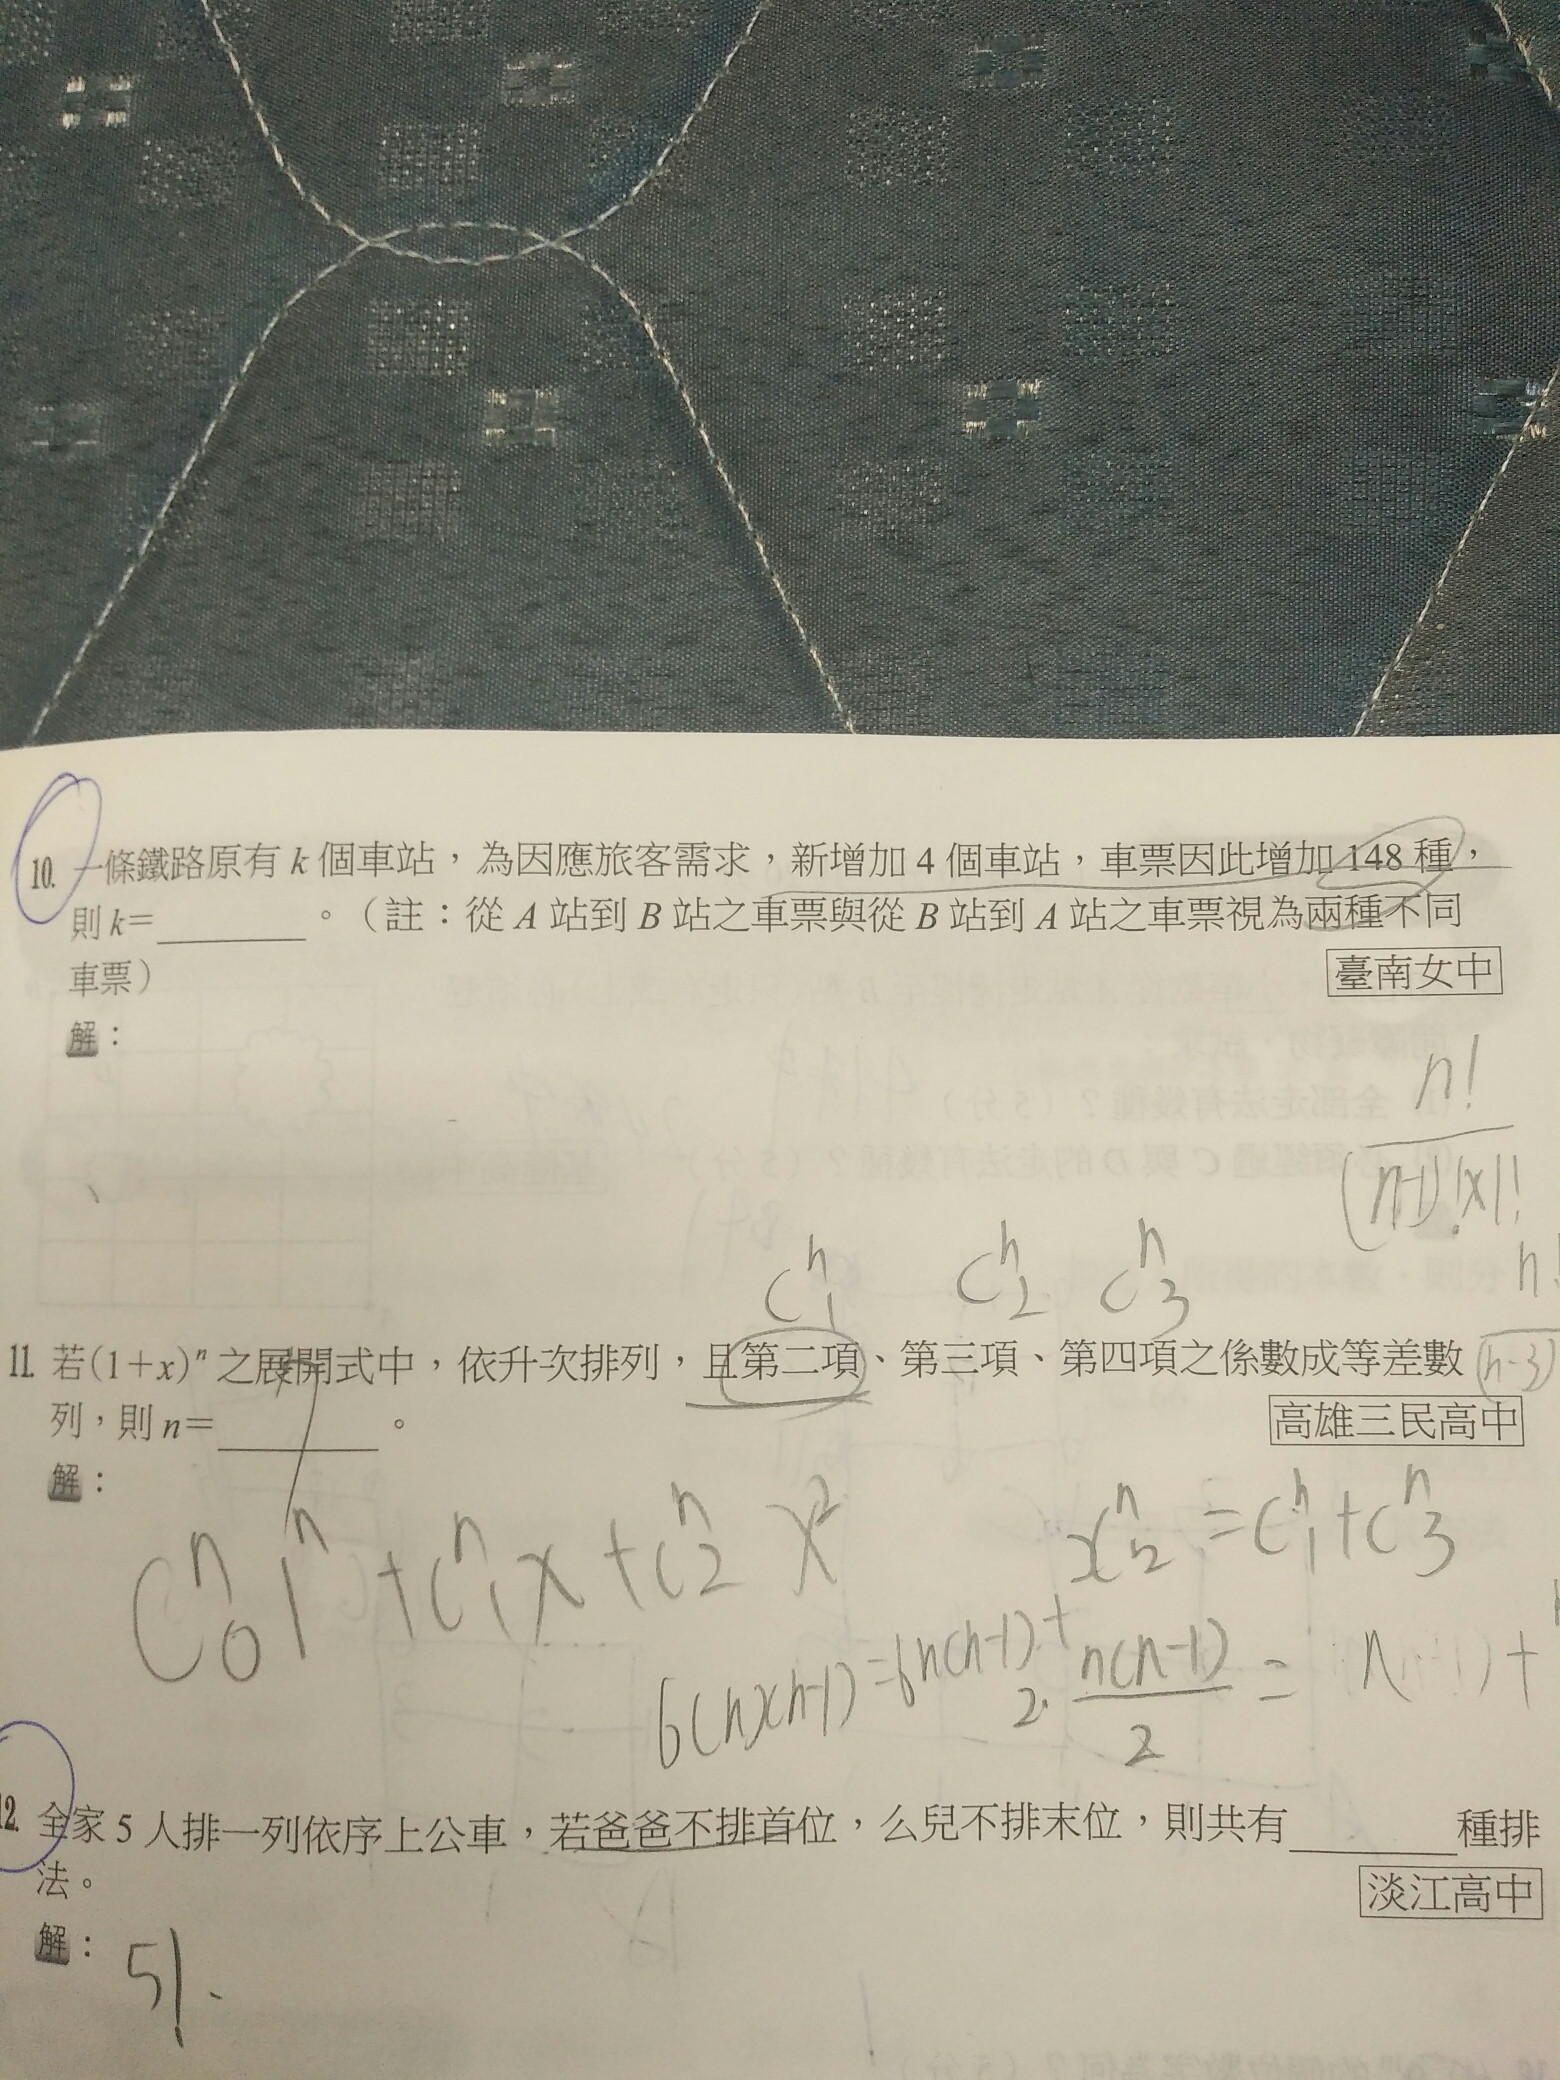 10. 一條鐵路原有 k 個車站，為因應旅客需求，新增加 4 個車站，車票因此增加 148 種，
則 k=______。（註：從 A 站到 B 站之車票與從 B 站到 A 站之車票視為兩種不同
車票）
臺南女中
解：
n!
(n-1)!×1!
C^n_1 C^n_2 C^n_3
n!
11. 若(1+x)^n 之展開式中，依升次排列，且第二項、第三項、第四項之係數成等差數
(n-3)
列，則 n=______。
高雄三民高中
解：
C^n_0 1^n + C^n_1 x + C^n_2 x^2
= C^n_1 + C^n_3
6(n)(n-1) = 6n(n-1) +
2· n(n-1)/2 = n
12. 全家 5 人排一列依序上公車，若爸爸不排首位，么兒不排末位，則共有______種排
法。
淡江高中
解：
5!